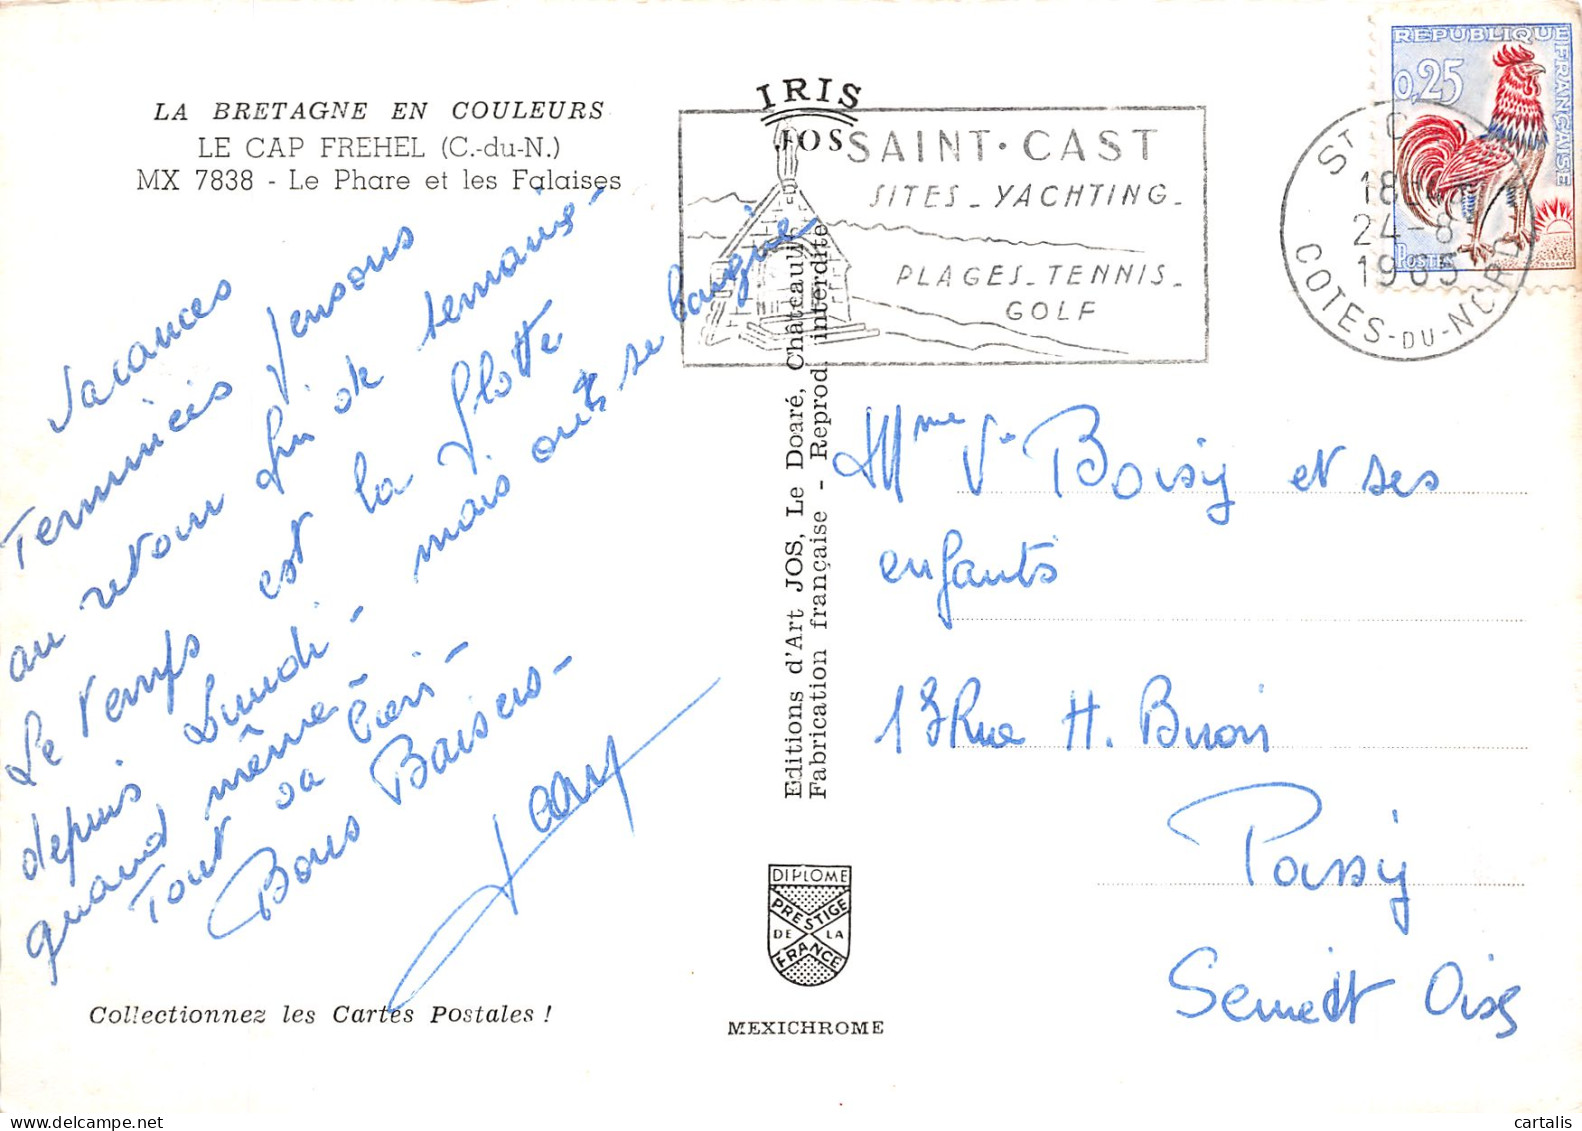 LA BRETAGNE EN COULEURS
LE CAP FREHEL (C.-du-N.)
MX 7838 - Le Phare et les Falaises
Vacances
Terminées Pensons
au retour fin de semaine -
Le temps est la flotte
depuis Lundi - mais on se baigne
quand même -
Tout va bien -
Bons Baisers -
Collectionnez les Cartes Postales !
IRIS
JOS
SAINT-CAST
SITES - YACHTING -
PLAGES - TENNIS -
GOLF
ST C
18
24-8
1965
COTES-DU-NORD
REPUBLIQUE FRANÇAISE
0,25
POSTES
DECARIS
Editions d'Art JOS, Le Doaré, Châteaulin
Fabrication française - Reprod. interdite
Mme Ve Boisy et ses
enfants
13 Rue H.
Passy
Seine et Oise
DIPLOME
PRESTIGE
DE LA
FRANCE
MEXICHROME
cartalis